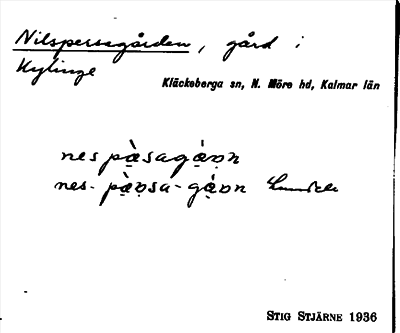 Nilspersgården, gård i
Kylinge
Kläckeberga sn, N. Möre hd, Kalmar län
nespạ̀sagạ̀ɒn
nes-pạ̀ɒ̣sa-gạ̀ɒn
STIG STJÄRNE 1936